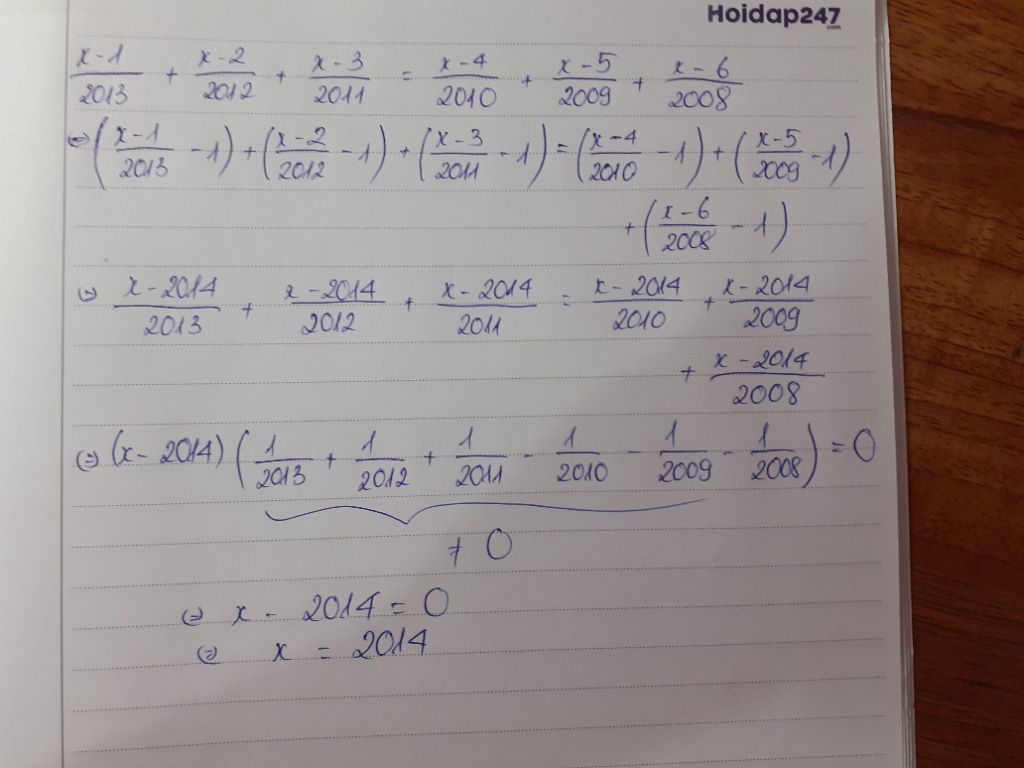 Hoidap247.com
x-1/2013 + x-2/2012 + x-3/2011 = x-4/2010 + x-5/2009 + x-6/2008
⇔ (x-1/2013 - 1) + (x-2/2012 - 1) + (x-3/2011 - 1) = (x-4/2010 - 1) + (x-5/2009 - 1)
+ (x-6/2008 - 1)
⇔ x-2014/2013 + x-2014/2012 + x-2014/2011 = x-2014/2010 + x-2014/2009
+ x-2014/2008
⇔ (x-2014) (1/2013 + 1/2012 + 1/2011 - 1/2010 - 1/2009 - 1/2008) = 0
≠ 0
⇔ x - 2014 = 0
⇔ x = 2014